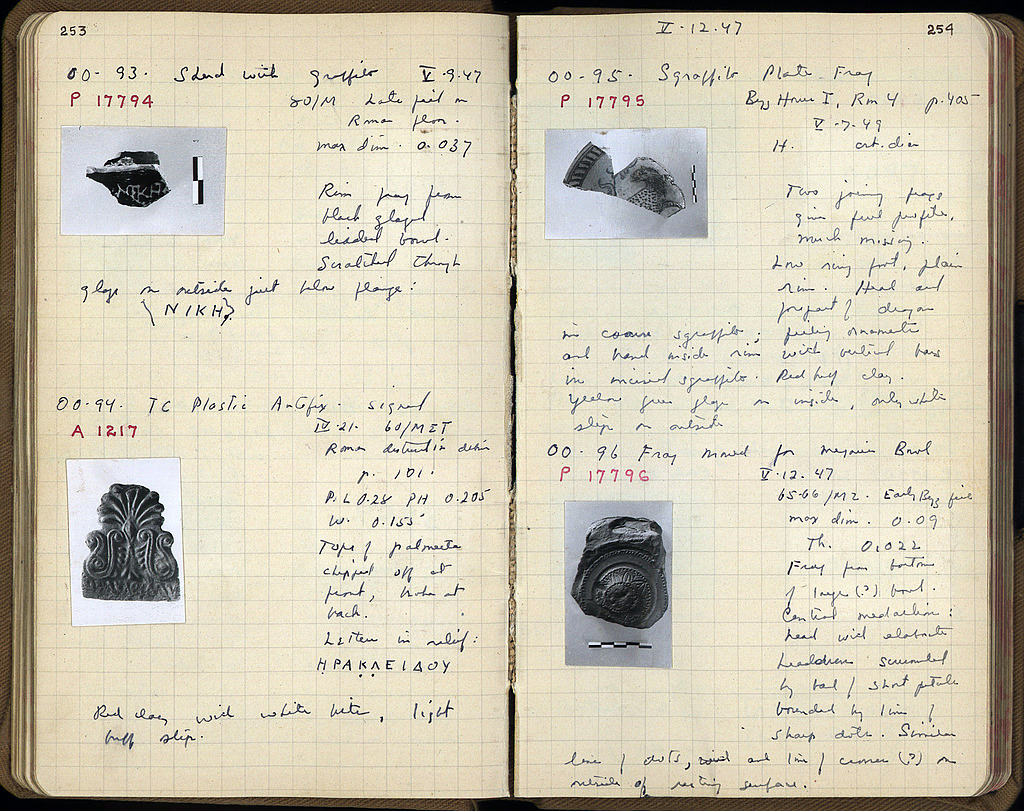 253
00-93. Sherd with graffito V.9.47
P 17794
80/M Late fill on
Roman floor.
max dim. 0.037
Rim frag from
black glazed
beaded bowl.
Scratched through
glaze on outside just below flange:
{ΝΙΚΗ}
00-94. TC Plastic Antefix. signed
A 1217
IV.21. 60/ΜΣΤ
Roman destruction debris
p. 101.
P.L 0.28 PH 0.205
W. 0.155
Tops of palmette
chipped off at
front, broken at
back.
Letters in relief:
ΗΡΑΚΛΕΙΔΟΥ
Red clay with white bits, light
buff slip.
V.12.47
254
00-95. Sgraffito Plate Frag
P 17795
Byz House I, Rm 4 p.405
V.7.49
H. est. diam
Two joining frags
give full profile,
much missing.
Low ring foot, plain
rim. Head and
forepart of dragon
in coarse sgraffito; filling ornaments
and band inside rim with vertical bars
in incised sgraffito. Red buff clay.
Yellow green glaze on inside, only white
slip on outside
00-96 Frag mould for megarian Bowl
P 17796
V.12.47
65-66/ΜΖ. Early Byz fill
max dim. 0.09
Th. 0.022
Frag from bottom
of large (?) bowl.
Central medallion:
head with elaborate
headdress surrounded
by band of short petals
bounded by line of
sharp dots. Similar
line of dots, and line of (?) on
outside of resting surface.